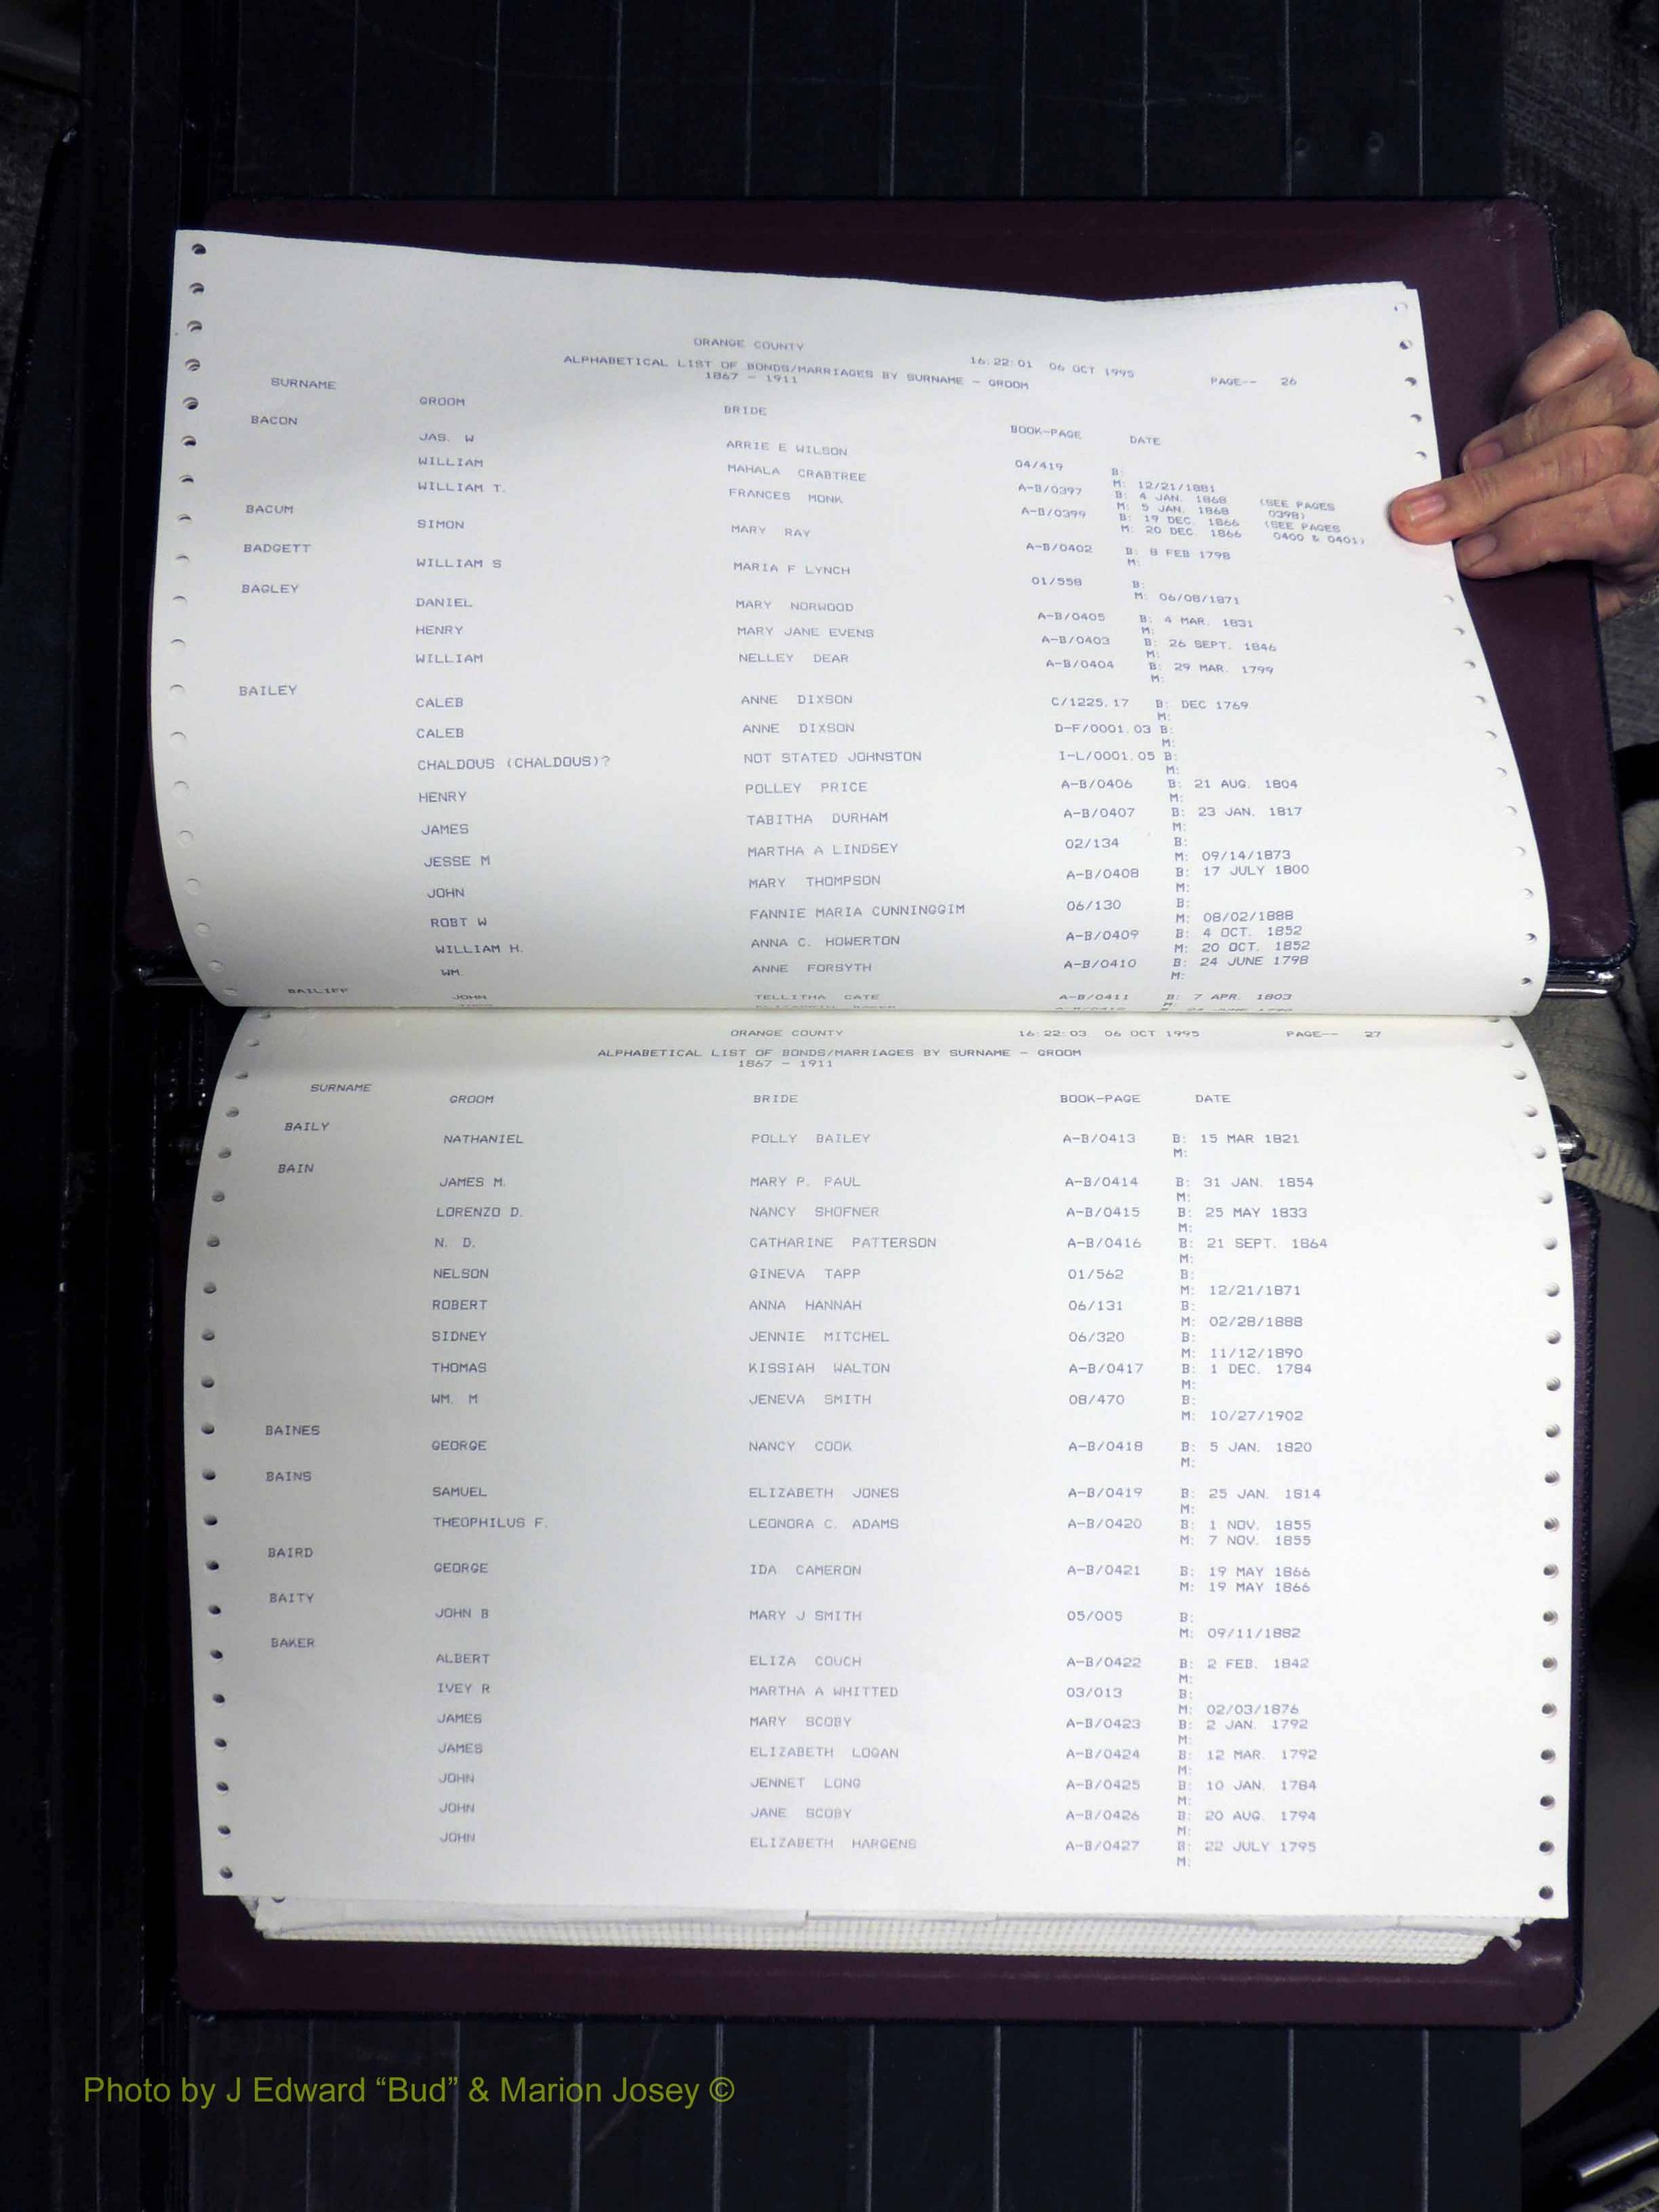 ORANGE COUNTY 16:22:01 06 OCT 1995 PAGE-- 26
ALPHABETICAL LIST OF BONDS/MARRIAGES BY SURNAME - GROOM
1867 - 1911
SURNAME GROOM BRIDE BOOK-PAGE DATE
BACON
JAS. W ARRIE E WILSON 04/419 B:
M: 12/21/1881
WILLIAM MAHALA CRABTREE A-B/0397 B: 4 JAN. 1868 (SEE PAGES
M: 5 JAN. 1868 0398)
WILLIAM T. FRANCES MONK A-B/0399 B: 19 DEC. 1866 (SEE PAGES
M: 20 DEC. 1866 0400 & 0401)
BACUM
SIMON MARY RAY A-B/0402 B: 8 FEB 1798
M:
BADGETT
WILLIAM S MARIA F LYNCH 01/558 B:
M: 06/08/1871
BAGLEY
DANIEL MARY NORWOOD A-B/0405 B: 4 MAR. 1831
M:
HENRY MARY JANE EVENS A-B/0403 B: 26 SEPT. 1846
M:
WILLIAM NELLEY DEAR A-B/0404 B: 29 MAR. 1799
M:
BAILEY
CALEB ANNE DIXSON C/1225.17 B: DEC 1769
M:
CALEB ANNE DIXSON D-F/0001.03 B:
M:
CHALDOUS (CHALDOUS)? NOT STATED JOHNSTON I-L/0001.05 B:
M:
HENRY POLLEY PRICE A-B/0406 B: 21 AUG. 1804
M:
JAMES TABITHA DURHAM A-B/0407 B: 23 JAN. 1817
M:
JESSE M MARTHA A LINDSEY 02/134 B:
M: 09/14/1873
JOHN MARY THOMPSON A-B/0408 B: 17 JULY 1800
M:
ROBT W FANNIE MARIA CUNNINGGIM 06/130 B:
M: 08/02/1888
WILLIAM H. ANNA C. HOWERTON A-B/0409 B: 4 OCT. 1852
M: 20 OCT. 1852
WM. ANNE FORSYTH A-B/0410 B: 24 JUNE 1798
M:
BAILIFF
JOHN TELLITHA CATE A-B/0411 B: 7 APR. 1803
ORANGE COUNTY 16:22:03 06 OCT 1995 PAGE-- 27
ALPHABETICAL LIST OF BONDS/MARRIAGES BY SURNAME - GROOM
1867 - 1911
SURNAME GROOM BRIDE BOOK-PAGE DATE
BAILY
NATHANIEL POLLY BAILEY A-B/0413 B: 15 MAR 1821
M:
BAIN
JAMES M. MARY P. PAUL A-B/0414 B: 31 JAN. 1854
M:
LORENZO D. NANCY SHOFNER A-B/0415 B: 25 MAY 1833
M:
N. D. CATHARINE PATTERSON A-B/0416 B: 21 SEPT. 1864
M:
NELSON GINEVA TAPP 01/562 B:
M: 12/21/1871
ROBERT ANNA HANNAH 06/131 B:
M: 02/28/1888
SIDNEY JENNIE MITCHEL 06/320 B:
M: 11/12/1890
THOMAS KISSIAH WALTON A-B/0417 B: 1 DEC. 1784
M:
WM. M JENEVA SMITH 08/470 B:
M: 10/27/1902
BAINES
GEORGE NANCY COOK A-B/0418 B: 5 JAN. 1820
M:
BAINS
SAMUEL ELIZABETH JONES A-B/0419 B: 25 JAN. 1814
M:
THEOPHILUS F. LEONORA C. ADAMS A-B/0420 B: 1 NOV. 1855
M: 7 NOV. 1855
BAIRD
GEORGE IDA CAMERON A-B/0421 B: 19 MAY 1866
M: 19 MAY 1866
BAITY
JOHN B MARY J SMITH 05/005 B:
M: 09/11/1882
BAKER
ALBERT ELIZA COUCH A-B/0422 B: 2 FEB. 1842
M:
IVEY R MARTHA A WHITTED 03/013 B:
M: 02/03/1876
JAMES MARY SCOBY A-B/0423 B: 2 JAN. 1792
M:
JAMES ELIZABETH LOGAN A-B/0424 B: 12 MAR. 1792
M:
JOHN JENNET LONG A-B/0425 B: 10 JAN. 1784
M:
JOHN JANE SCOBY A-B/0426 B: 20 AUG. 1794
M:
JOHN ELIZABETH HARGENS A-B/0427 B: 22 JULY 1795
M:
Photo by J Edward “Bud” & Marion Josey ©